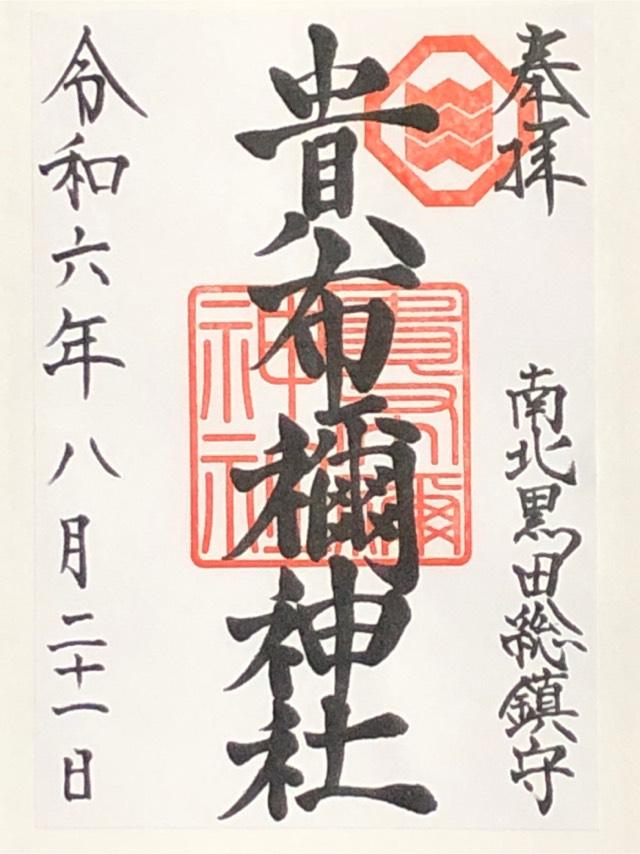 奉拝
南北黒田総鎮守
貴布禰神社
令和六年八月二十一日